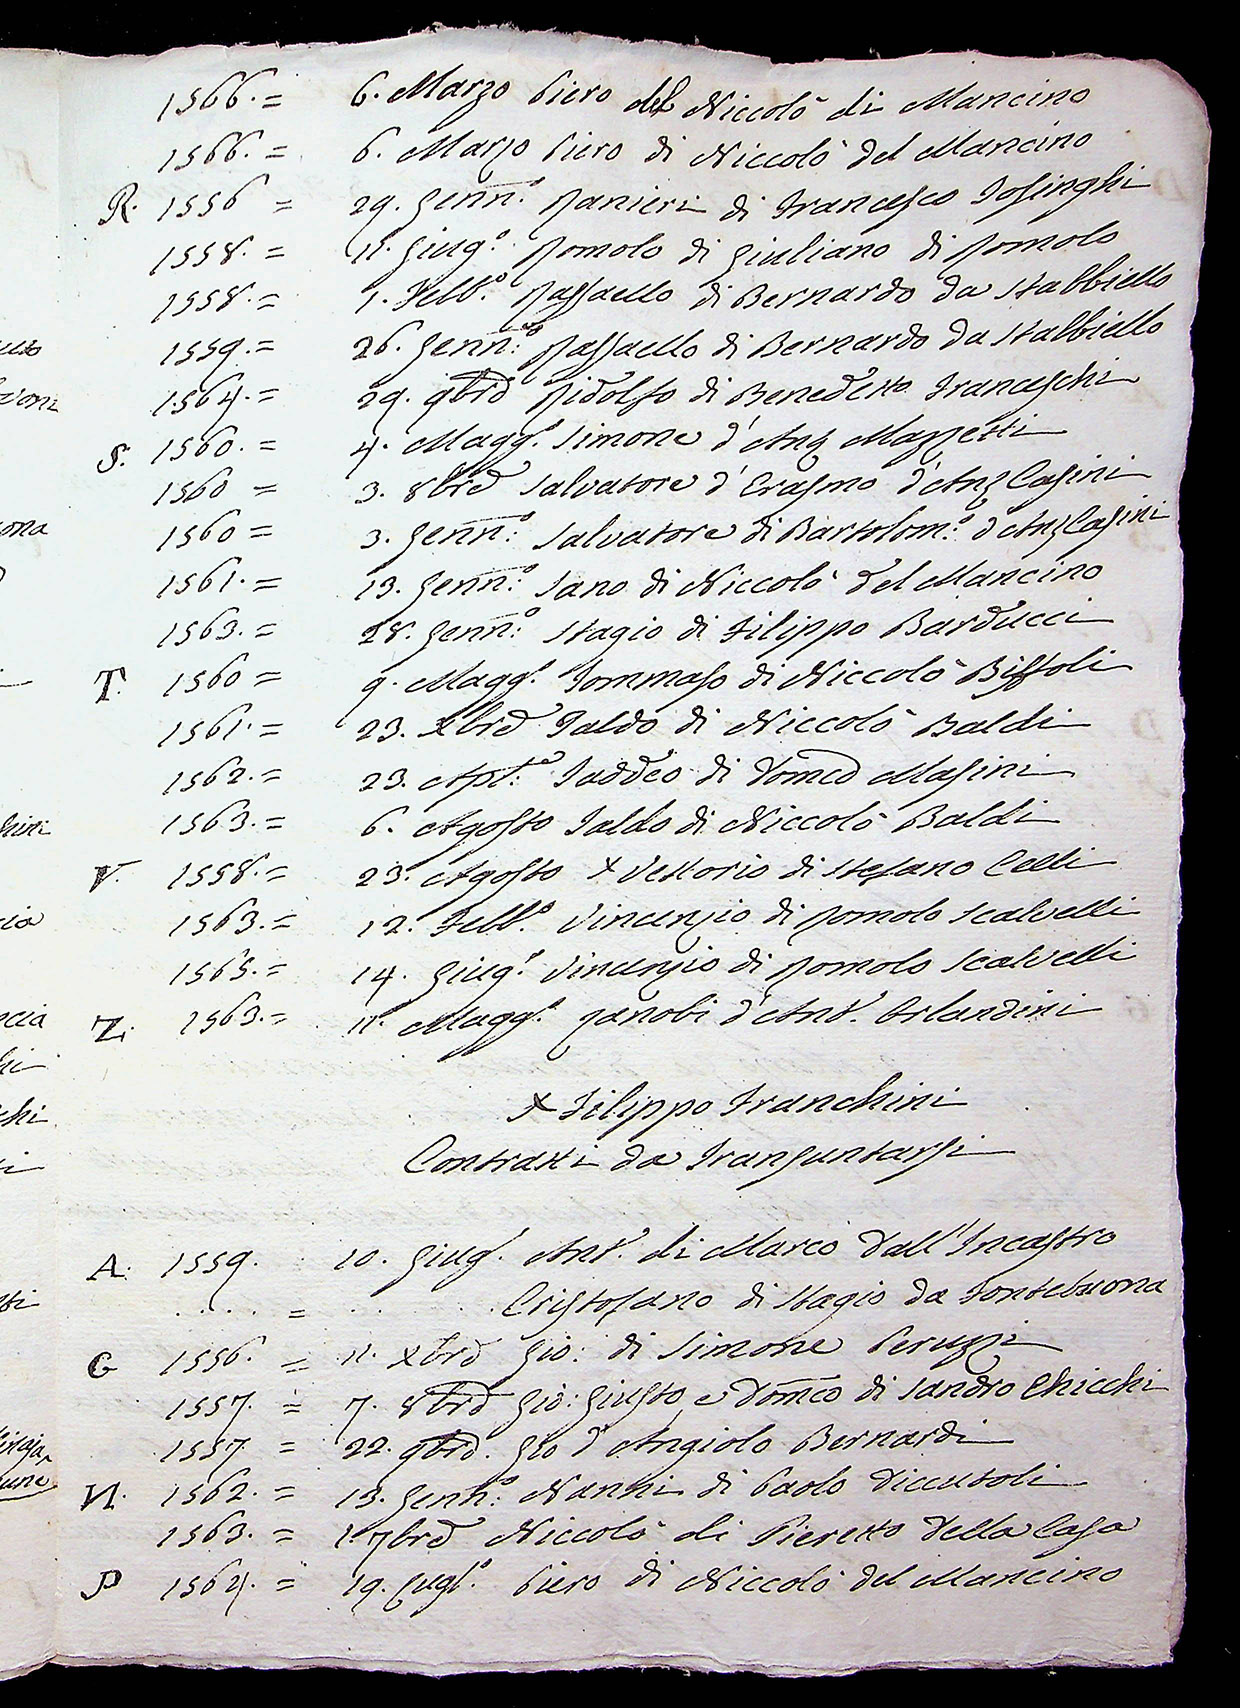 1566. = 6. Marzo Piero del Niccolò di Mancino
1566. = 6. Marzo Piero di Niccolò del Mancino
R. 1556 = 29. Genn.º Ranieri di Francesco Tosinghi
1558. = 11. Giug.º Romolo di Giuliano di Romolo
1558. = 1. Febb.º Raffaello di Bernardo da Stabbiello
1559. = 26. Genn:º Raffaello di Bernardo da Stabbiello
1564. = 29. 9bre Ridolfo di Benedetto Franceschi
S. 1560. = 4. Magg.º Simone d'Ant Mazzetti
1560 = 3. 8bre Salvatore d'Erasmo d'Ant Casini
1560 = 3. Genn:º Salvatore di Bartolom.º d'Ant Casini
1561. = 13. Genn:º Sano di Niccolò del Mancino
1563. = 28. Genn:º Stagio di Filippo Barducci
T. 1560 = 9. Magg.º Tommaso di Niccolò Biffoli
1561. = 23. Xbre Taldo di Niccolò Baldi
1562. = 23. Apl:e Taddeo di Domco Masini
1563. = 6. Agosto Taldo di Niccolò Baldi
V. 1558. = 23. Agosto + Vettorio di Stefano Celli
1563. = 12. Febb.º Vincenzio di Romolo Scalvelli
1565. = 14. Giug.º Vincenzio di Romolo Scalvelli
Z. 1563. = 11. Magg.º Zanobi d'Ant.º Orlandini
+ Filippo Franchini
Contratti da Transuntarsi
A. 1559. 10. Giug.º Ant.º di Marco dall'Incastro
. . . . = . . . Cristofano di Stagio da Fontebuona
G 1556. = 11. Xbre Gio: di Simone Peruzzi
1557. = 7. 8bre Gio: Giusto e Domco di Sandro Chicchi
1557 = 22. 9bre. Gio d'Angiolo Bernardi
N. 1562. = 13. Genn:º Nanni di Paolo Diccutoli
1563. = 1. 7bre Niccolò di Pieretto della Casa
P 1564. = 19. Lugl.º Piero di Niccolò del Mancino